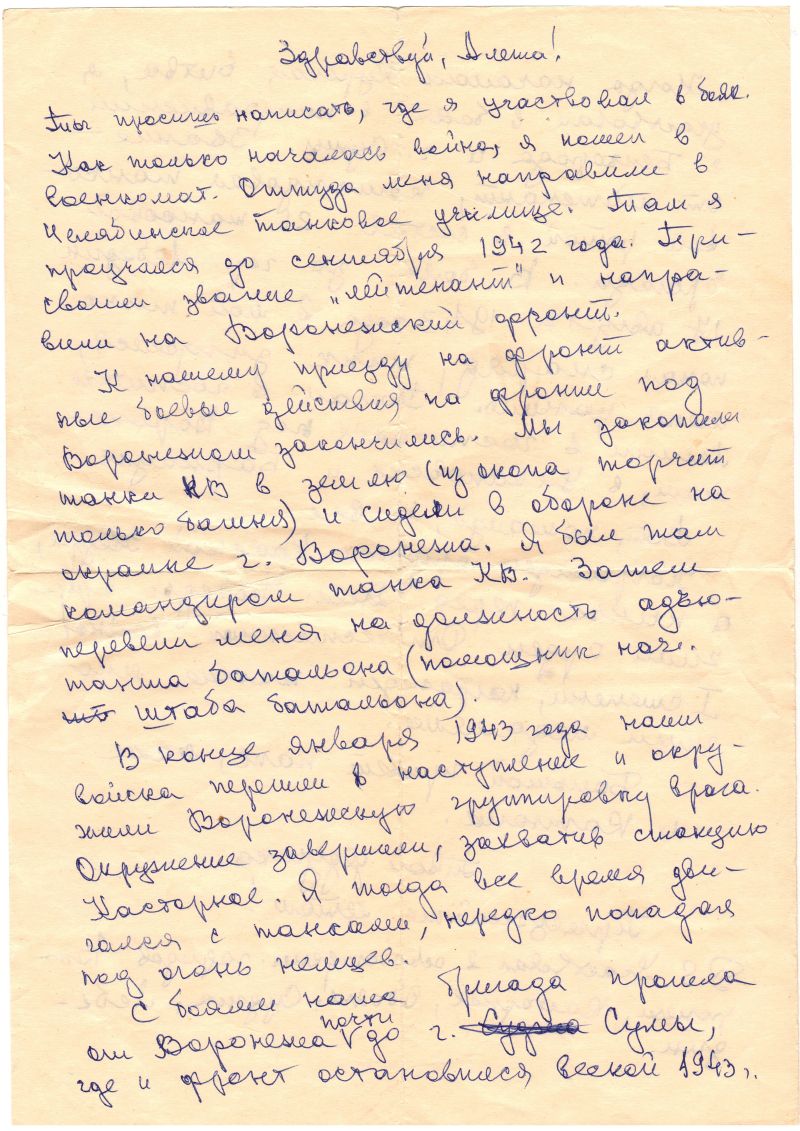 Здравствуй, Алеша!
Ты просишь написать, где я участвовал в боях.
Как только началась война, я пошел в
военкомат. Оттуда меня направили в
Челябинское танковое училище. Там я
проучился до сентября 1942 года. При-
своили звание „лейтенант" и напра-
вили на Воронежский фронт.
К нашему приезду на фронт актив-
ные боевые действия на фронте под
Воронежом закончились. Мы закопали
танки КВ в землю (из окопа торчит
только башня) и сидели в обороне на
окраине г. Воронежа. Я был там
командиром танка КВ. Затем
перевели меня на должность адъю-
танта батальона (помощник нач.
штаба батальона).
В конце января 1943 года наши
войска перешли в наступление и окру-
жили Воронежскую группировку врага.
Окружение завершили, захватив станцию
Касторное. Я тогда все время дви-
гался с танками, нередко попадая
под огонь немцев.
С боями наша бригада прошла
от Воронежа почти до г. Суджа Сумы,
где и фронт остановился весной 1943 г.